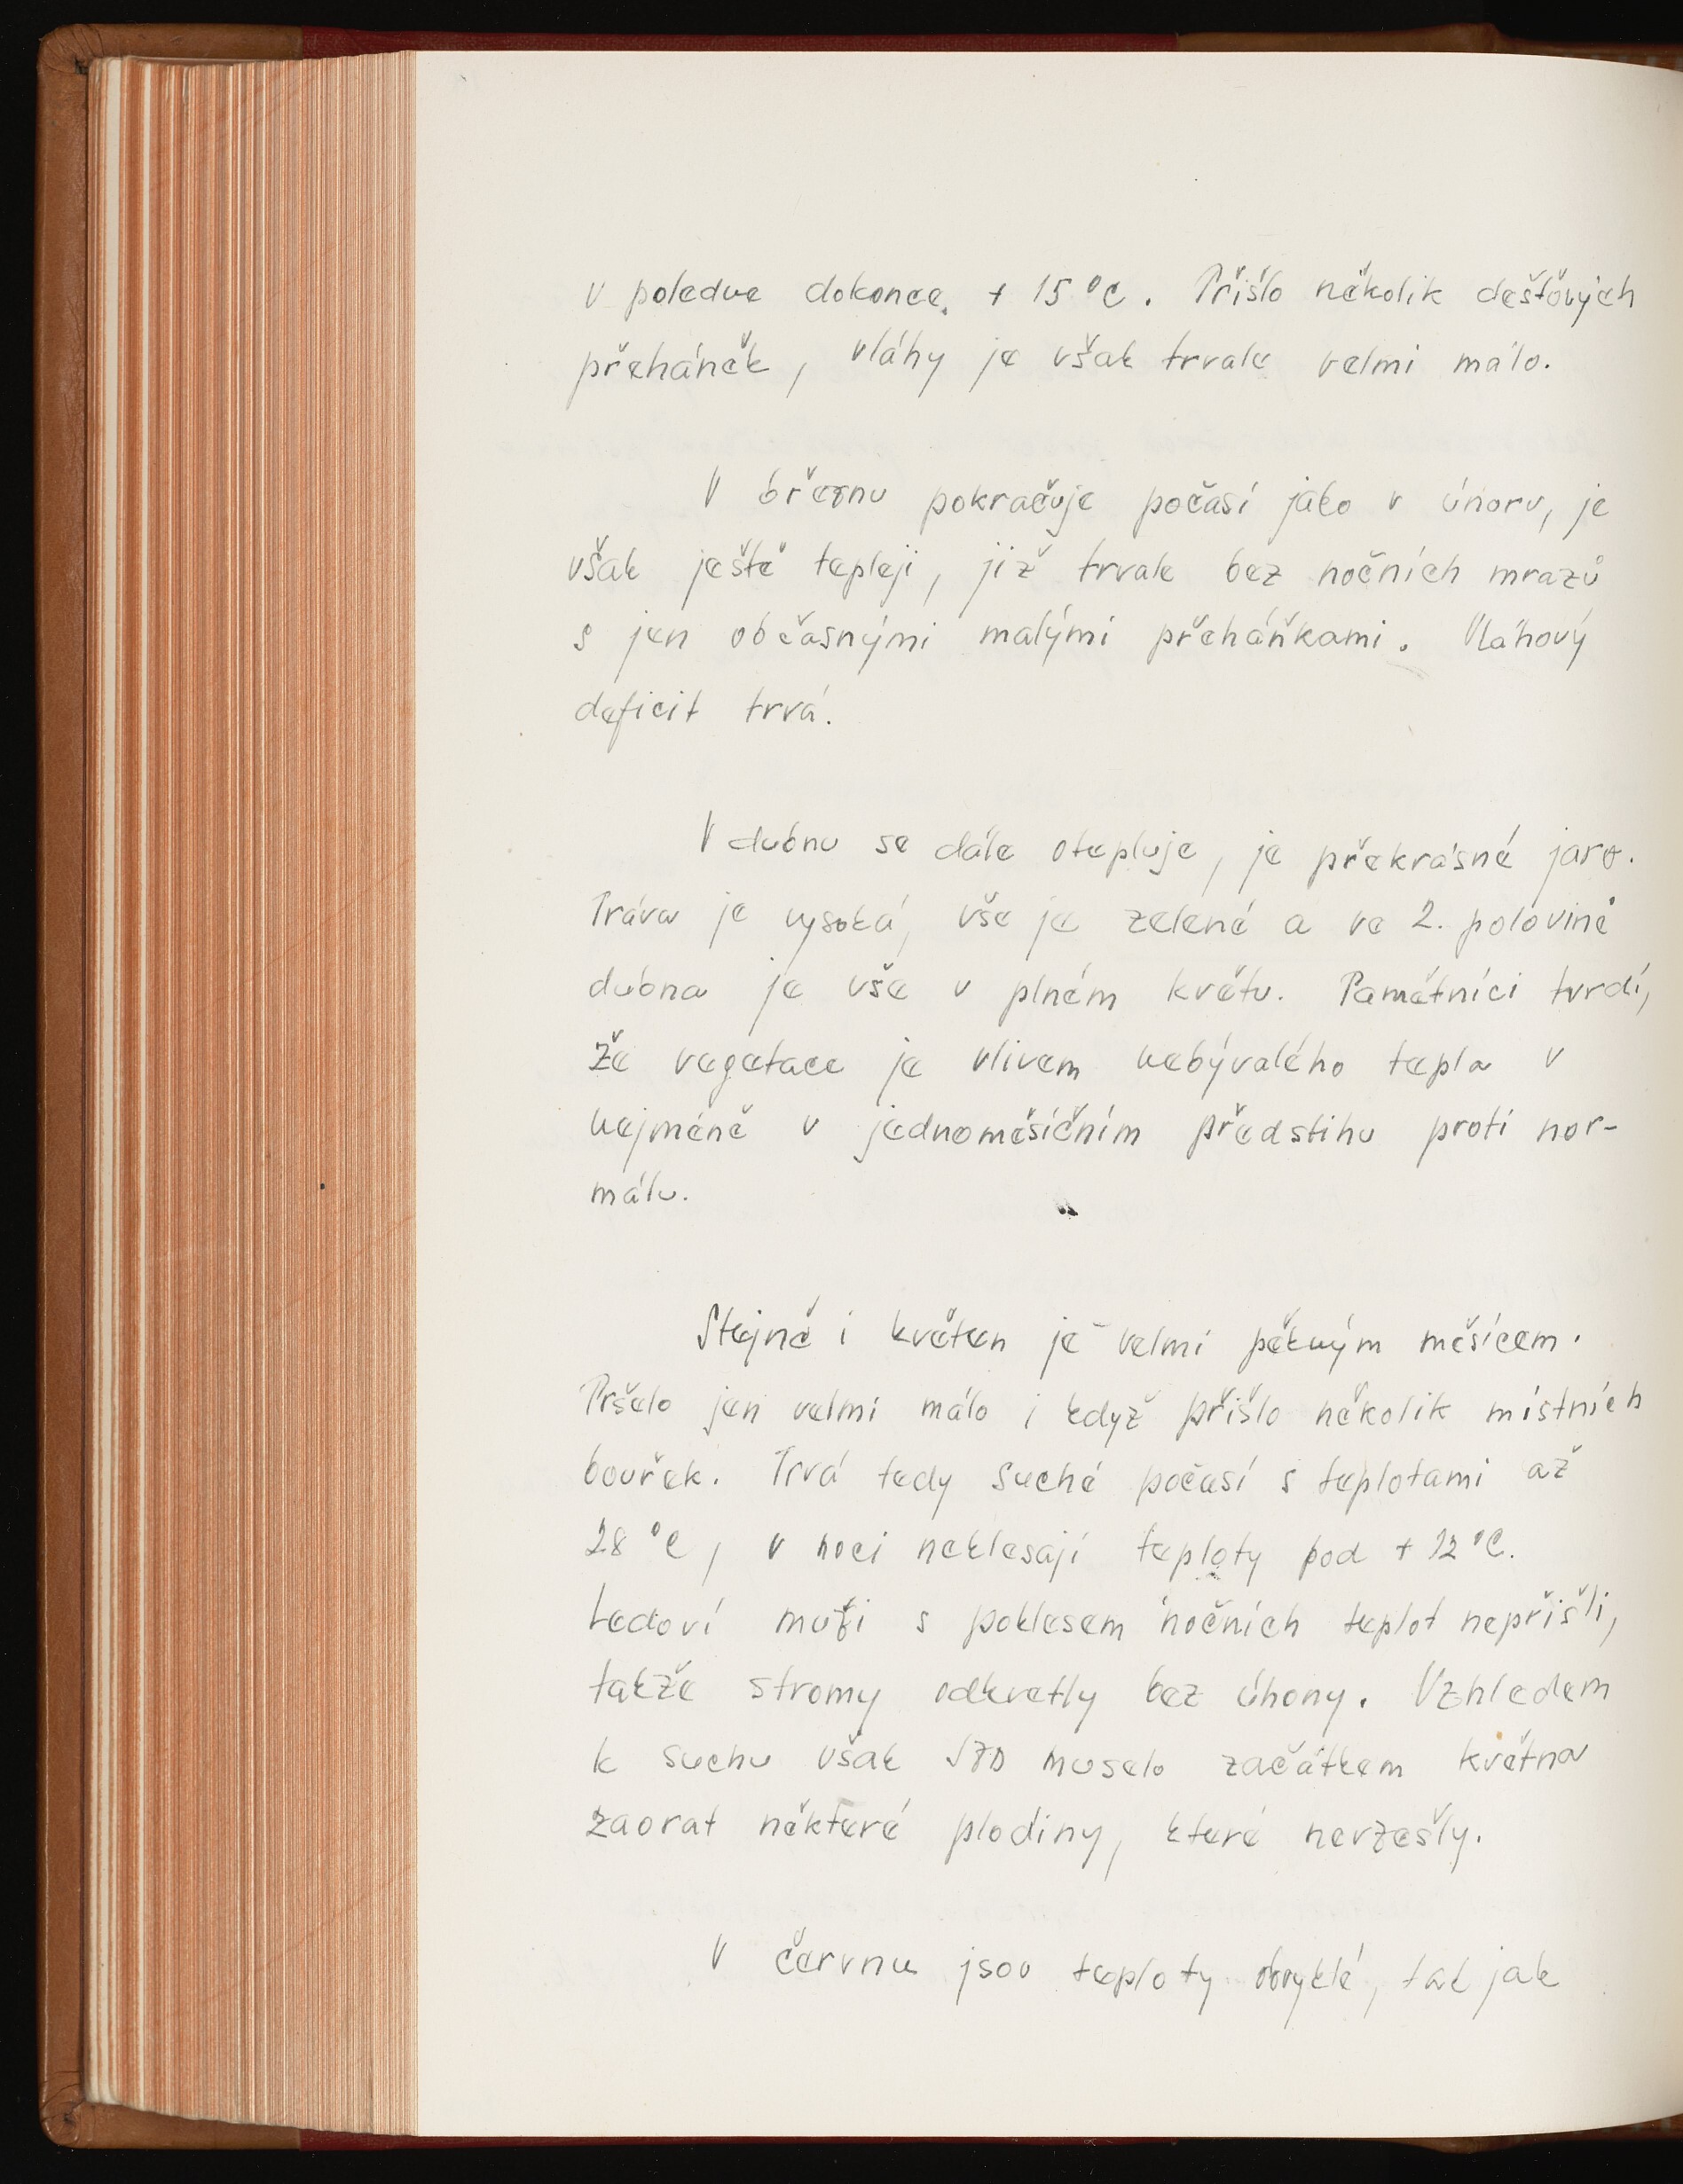 v poledne dokonce + 15 °C. Přišlo několik dešťových
přeháněk, vláhy je však trvale velmi málo.
V březnu pokračuje počasí jako v únoru, je
však ještě tepleji, již trvale bez nočních mrazů
s jen občasnými malými přeháňkami. Vláhový
deficit trvá.
V dubnu se dále otepluje, je překrásné jaro.
Tráva je vysoká, vše je zelené a ve 2. polovině
dubna je vše v plném květu. Pamětníci tvrdí,
že vegetace je vlivem nebývalého tepla v
nejméně v jednoměsíčním předstihu proti nor-
málu.
Stejně i květen je velmi pěkným měsícem.
Pršelo jen velmi málo i když přišlo několik místních
bouřek. Trvá tedy suché počasí s teplotami až
28 °C, v noci neklesají teploty pod + 12 °C.
Ledoví muži s poklesem nočních teplot nepřišli,
takže stromy odkvetly bez úhony. Vzhledem
k suchu však JZD muselo začátkem května
zaorat některé plodiny, které nevzešly.
V červnu jsou teploty obvyklé, tak jak